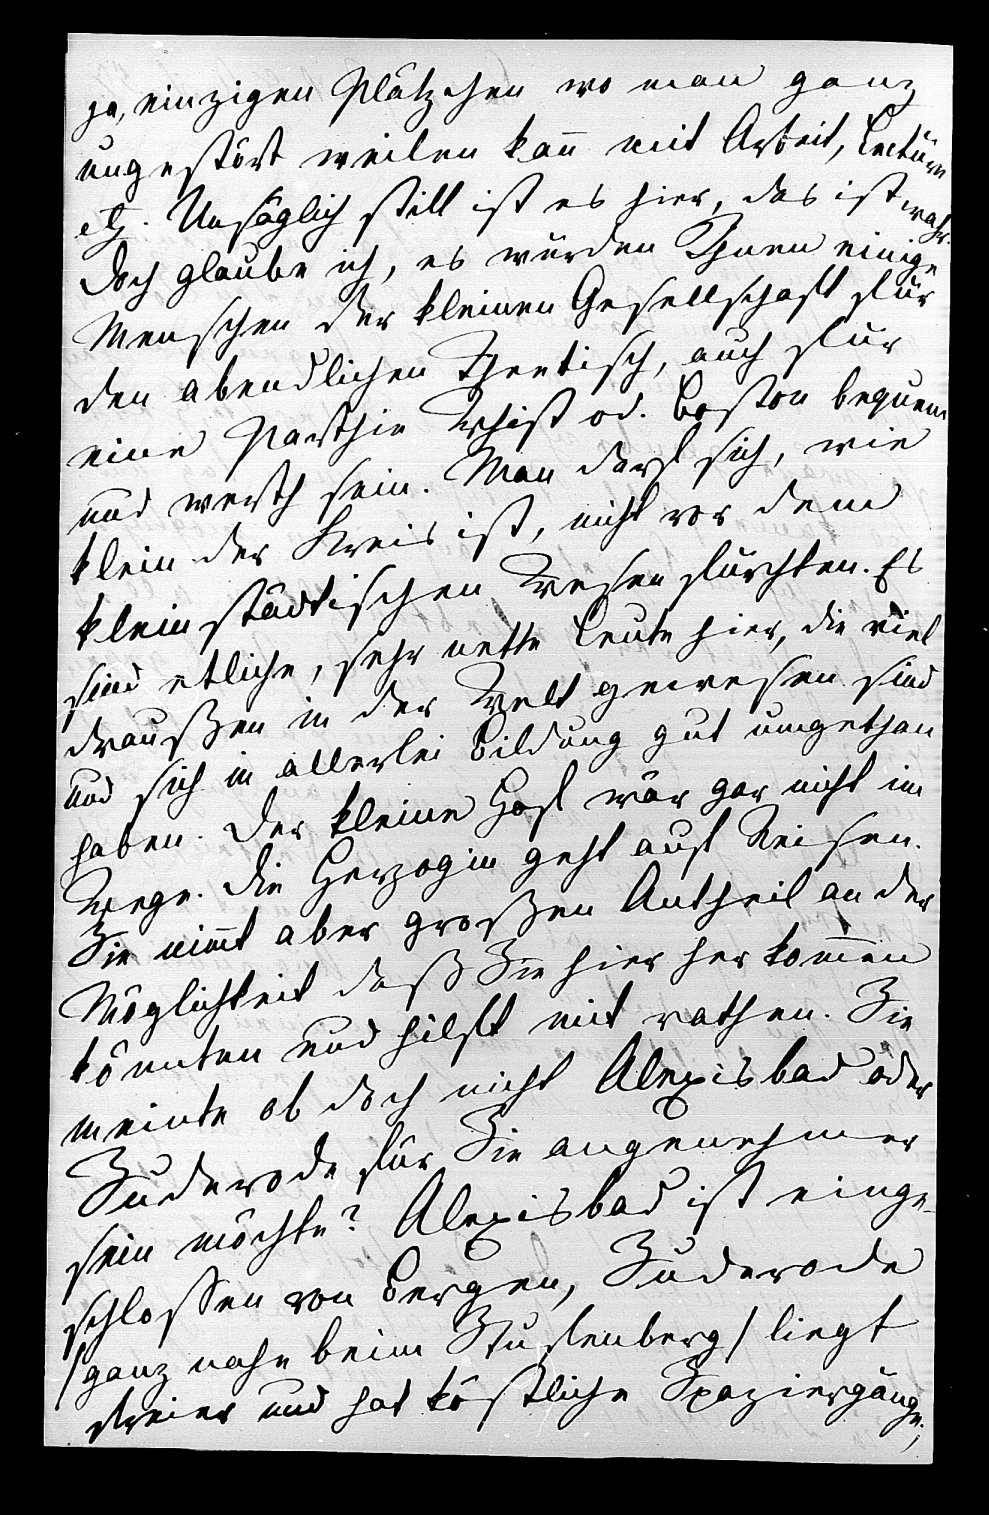 ja, einzigen Plätzchen wo man ganz
ungestört weilen kañ mit Arbeit, Lectüre
etz. Unsäglich still ist es hier, das ist wahr.
Doch glaube ich, es würden Ihnen einige
Menschen der kleinen Gesellschaft für
den abendlichen Theetisch, auch für
eine Parthie Whist od. Boston bequem
und werth sein. Man darf sich, wie
klein der Kreis ist, nicht vor dem
kleinstädtischen Wesen fürchten. Es
sind etliche, sehr nette Leute hier, die viel
draußen in der Welt gewesen sind
und sich in allerlei Bildung gut umgethan
haben. Der kleine Hof wär gar nicht im
Wege. Die Herzogin geht auf Reisen.
Sie nim̄t aber großen Antheil an der
Möglichkeit daß Sie hier her kom̄en
könnten und hilft mit rathen. Sie
meinte ob doch nicht Alexisbad oder
Suderode für Sie angenehmer
sein möchte? Alexisbad ist einge-
schlossen von Bergen, Suderode
/ganz nahe beim Stufenberg/ liegt
freier und hat köstliche Spaziergänge;